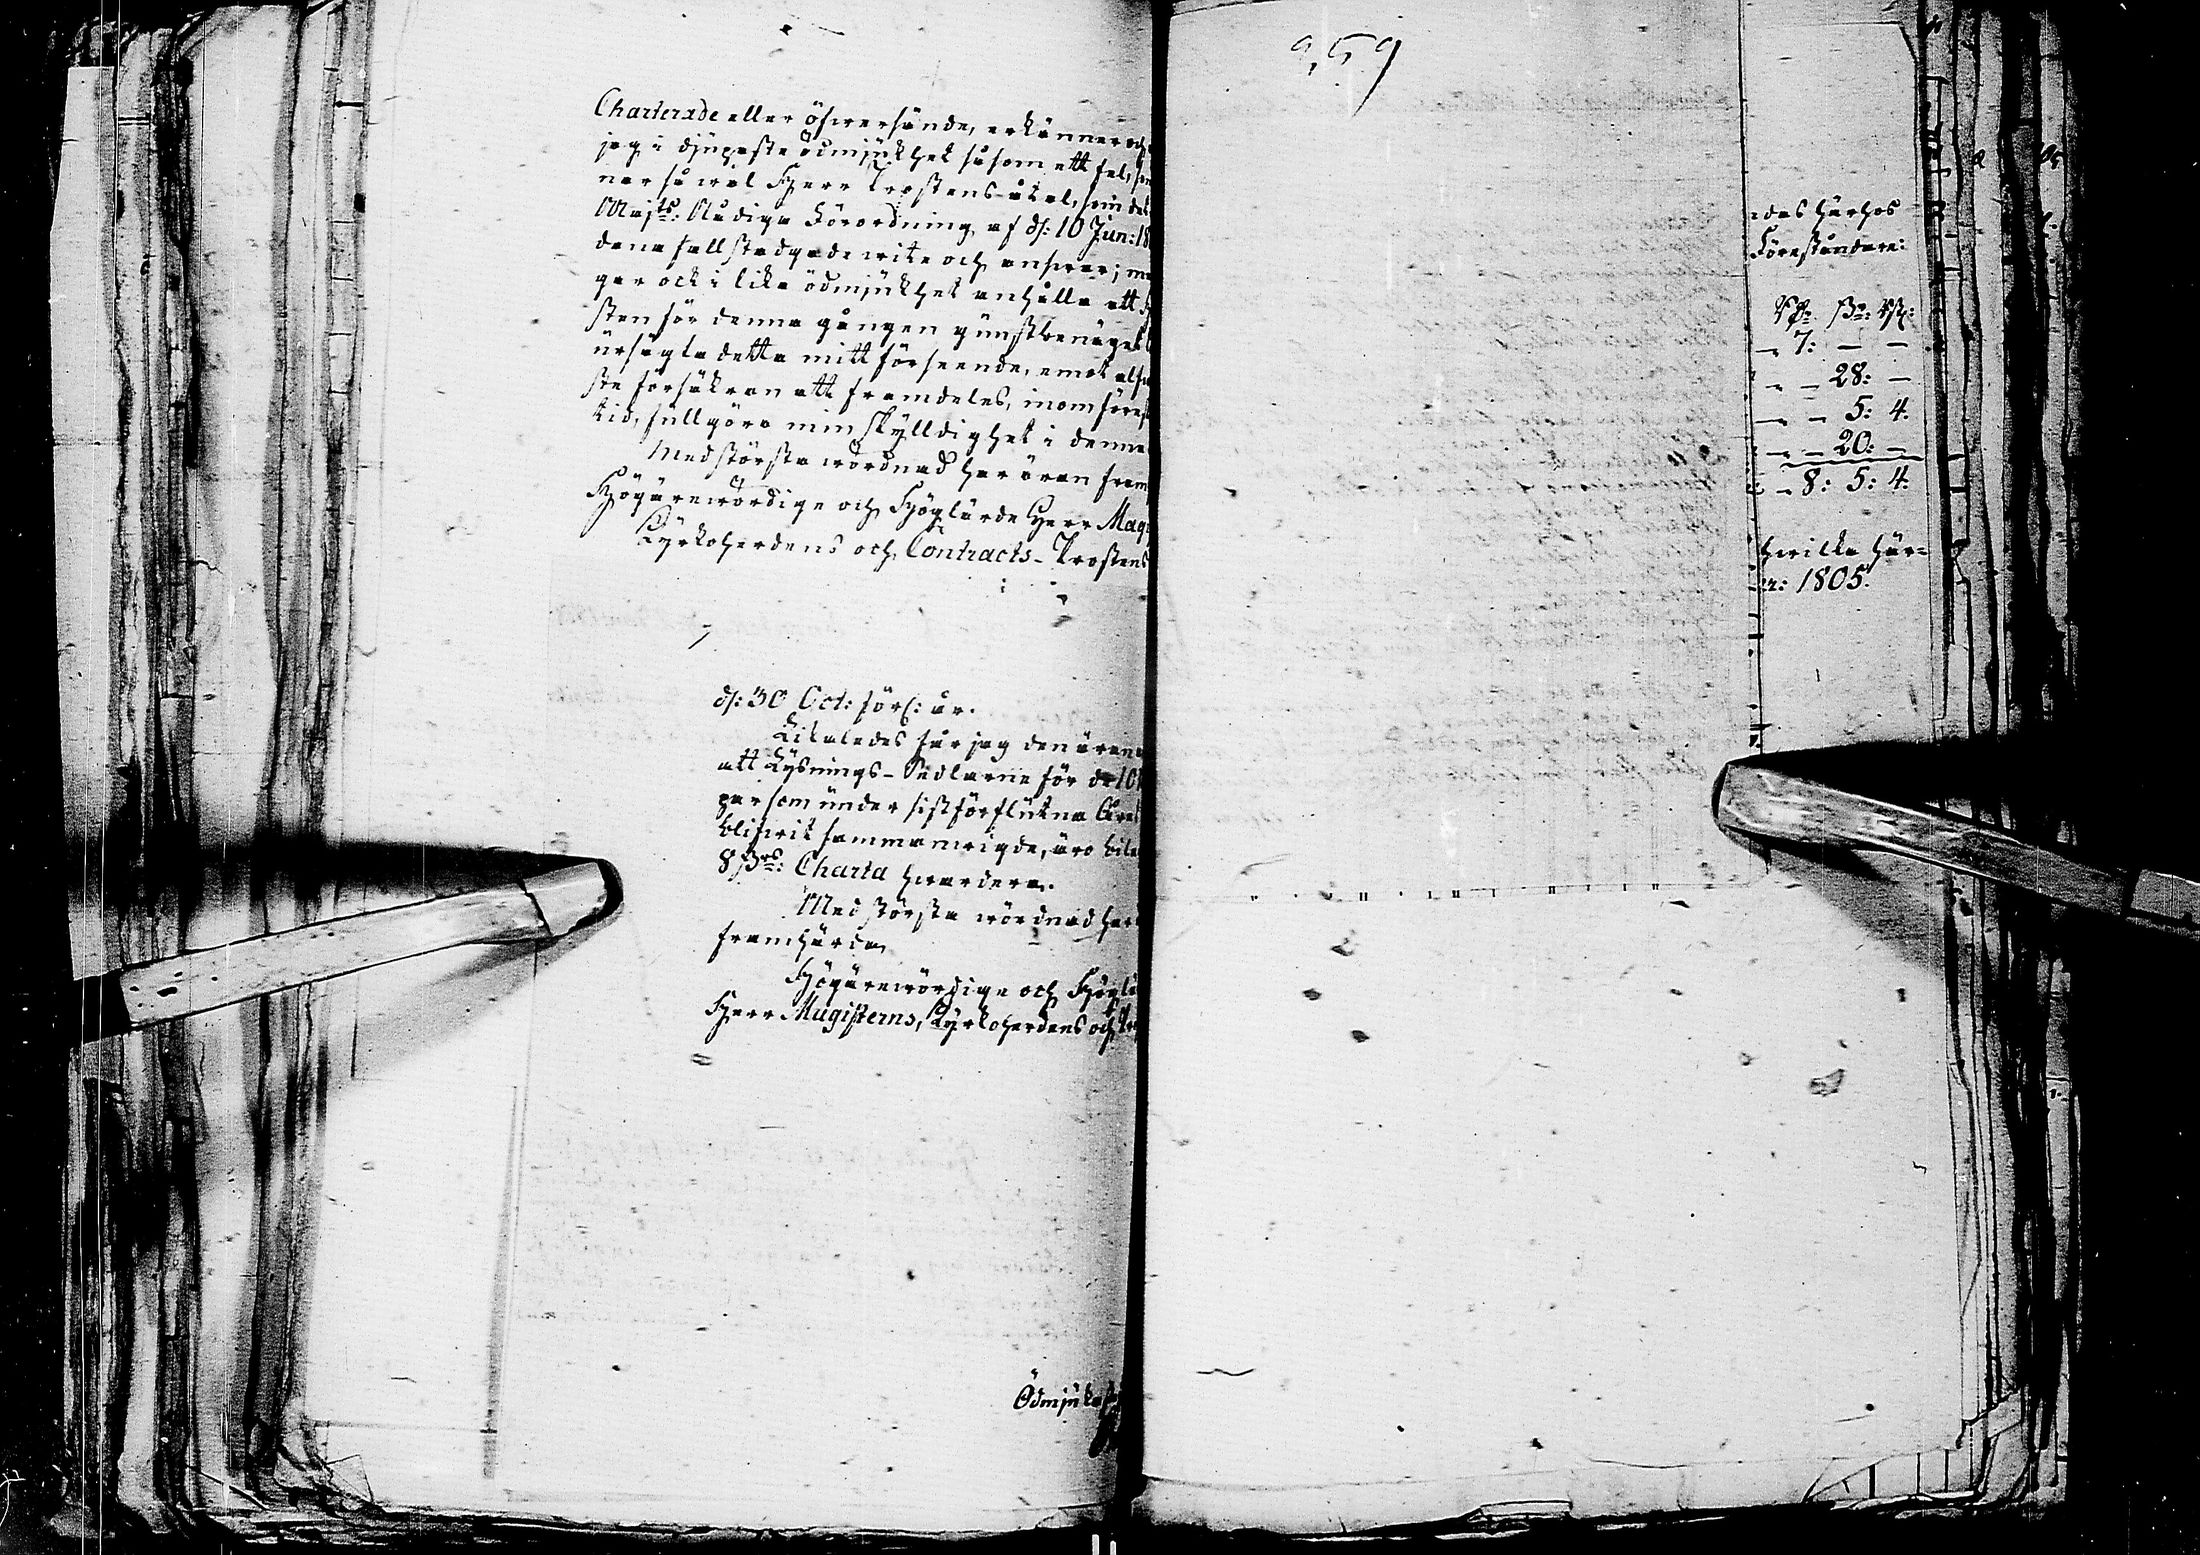 Charterade eller öfwersände, erkänner och
jag i djupaste ödmjukhet såsom ett fel, som
nar så wäl Herr Prostens åtal, som des
Majts: Nådiga Förordning af d: 10 Jun: 18
dana fall stadgade wite och answar; men
gar ock i lika ödmjukhet anhålla att H
sten för denna gången gunstbenäget
ursägta detta mitt förseende, emot alfwar
ste försäkran att framdeles, inom före
tid, fullgöra min skylldighet i denna
Med största wördnad har äran fram
Högärewördige och Höglärde Herr Mag
Kyrkoherdens och Contracts-Prostens
d: 30 Oct: förl: år.
Likaledes får jag den äran
att Lysnings-Sedlarne för de 10
par som under sistförflutna Året
blifwit sammanwigde, äro bila
8 ss: Charta hwardera.
Med största wördnad har
framhärda
Högärewördige och Höglä
Herr Magisterns, Kyrkoherdens och Pro
Ödmjukaste
959
das härhos
Föreståndare:
7: — —
— 28: —
— 5: 4.
— 20: —
8: 5: 4.
hwilka här=
r: 1805.